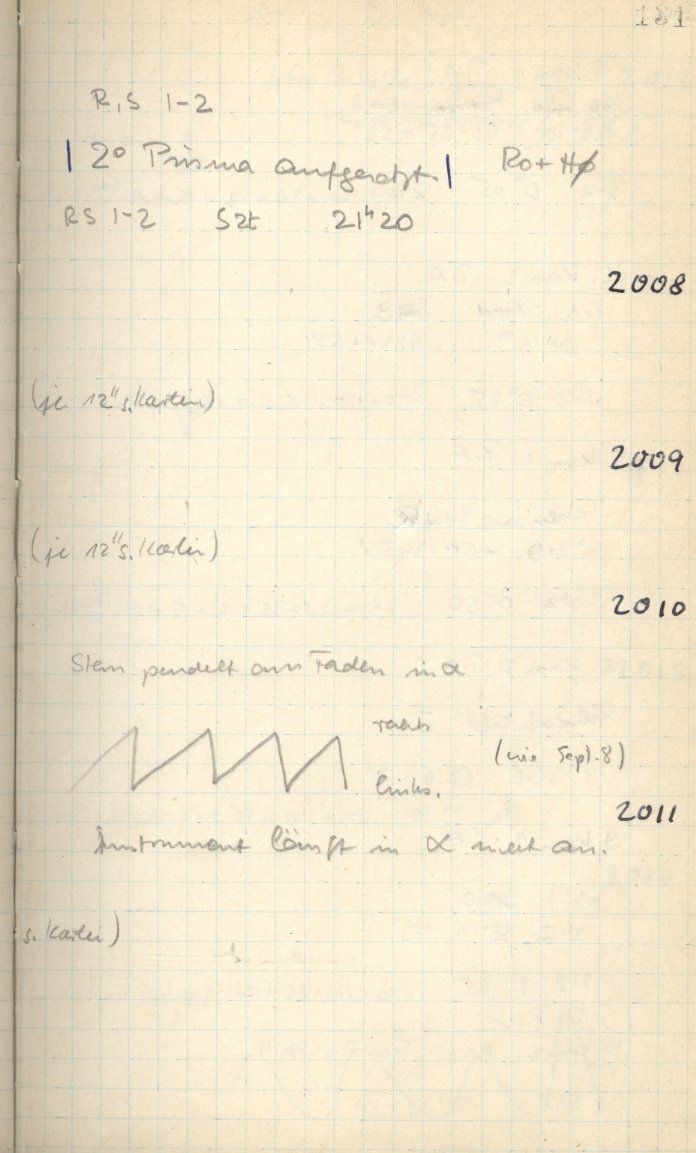 131
R, S 1-2
| 2° Prisma aufgesetzt. | Ro + Hϕ
RS 1-2 Szt 21ʰ20
2008
(je 12" s. Kartei)
2009
(je 12" s. Kartei)
2010
Stern pendelt am Faden in α
rechts
(wie Sept. 8)
links.
2011
Instrument läuft in α nicht an.
s. Kartei)